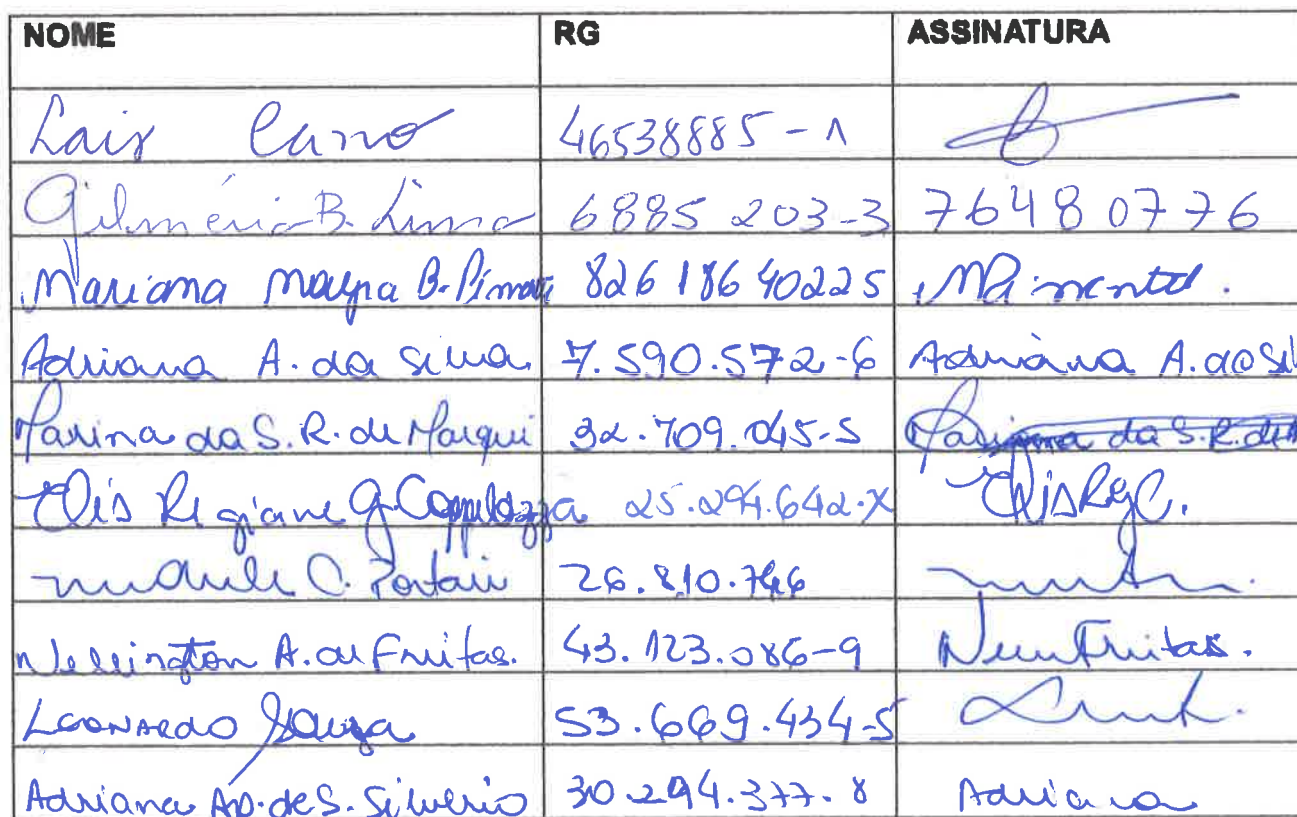 NOME RG ASSINATURA
Lais Cano 46538885-1
Gilménia B. Lima 6885 203-3 76480776
Mariana Mayra B. 826 186 40225 MPimentel.
Adriana A. da Silva 7.590.572-6 Adriana A. da Sil
Marina da S. R. de Marqui 32.709.045-5 Marina da S. R. de
Elis Regiane G. Cappelazza 25.294.642-X Elis RgC.
C. 26.810.746
Wellington A. de Freitas. 43.123.086-9 Freitas.
Leonardo Souza 53.669.434-5
Adriana Ap. de S. Silverio 30.294.377.8 Adriana